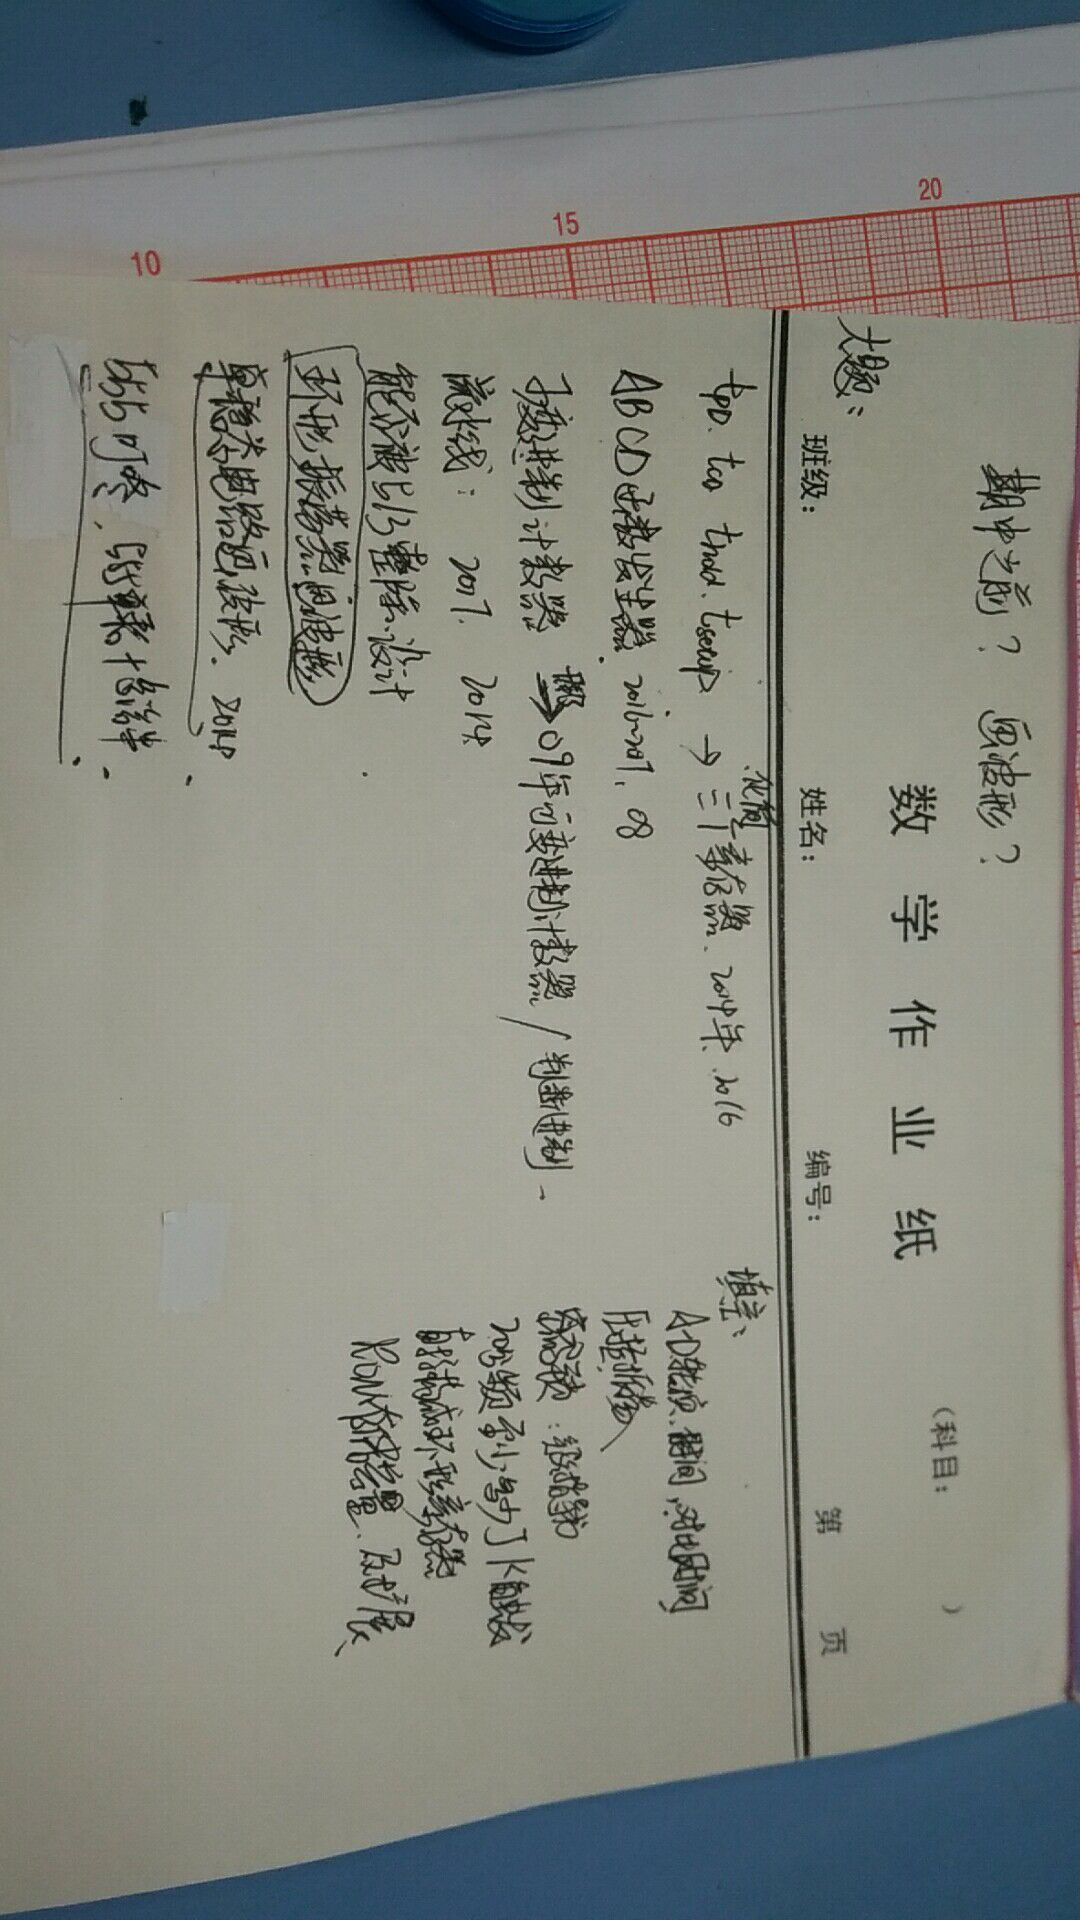 期中之前？ 画波形？
（科目： ）
数学作业纸
大题：
班级： 姓名： 编号： 第 页
化简
tPD. tCO thold. tsetup → 三个寄存器. 2014年. 2016
ABCD函数发生器. 2016~2017, 08
可变进制计数器 → 09年可变进制计数器 / 判断进制
流水线： 2017. 2014
能否被5/3整除.设计
环形振荡器画波形
单稳态电路画波形. 2014
555叮咚, 555单稳+
填空：
A-D转换.时间，对比时间
20分频至少多少JK触发
直接构成环形寄存器
ROM存储容量.及扩展
20
15
10